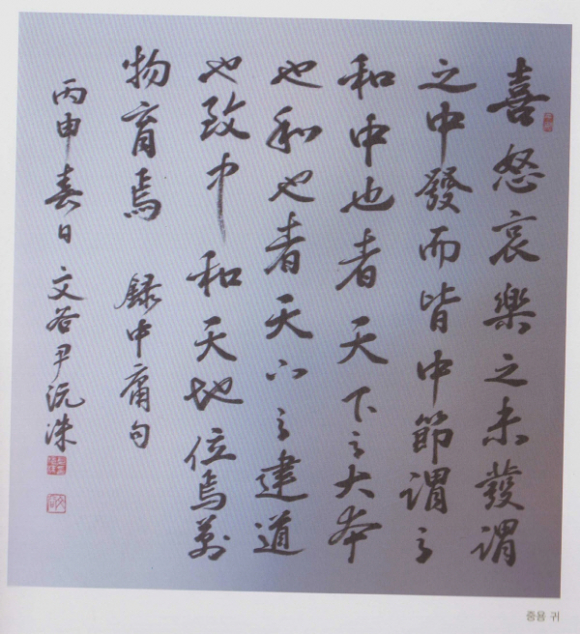 喜怒哀樂之未發謂
之中發而皆中節謂之
和中也者天下之大本
也和也者天下之達道
也致中和天地位焉萬
物育焉 録中庸句
丙申春日 文谷尹沅洙
중용 귀